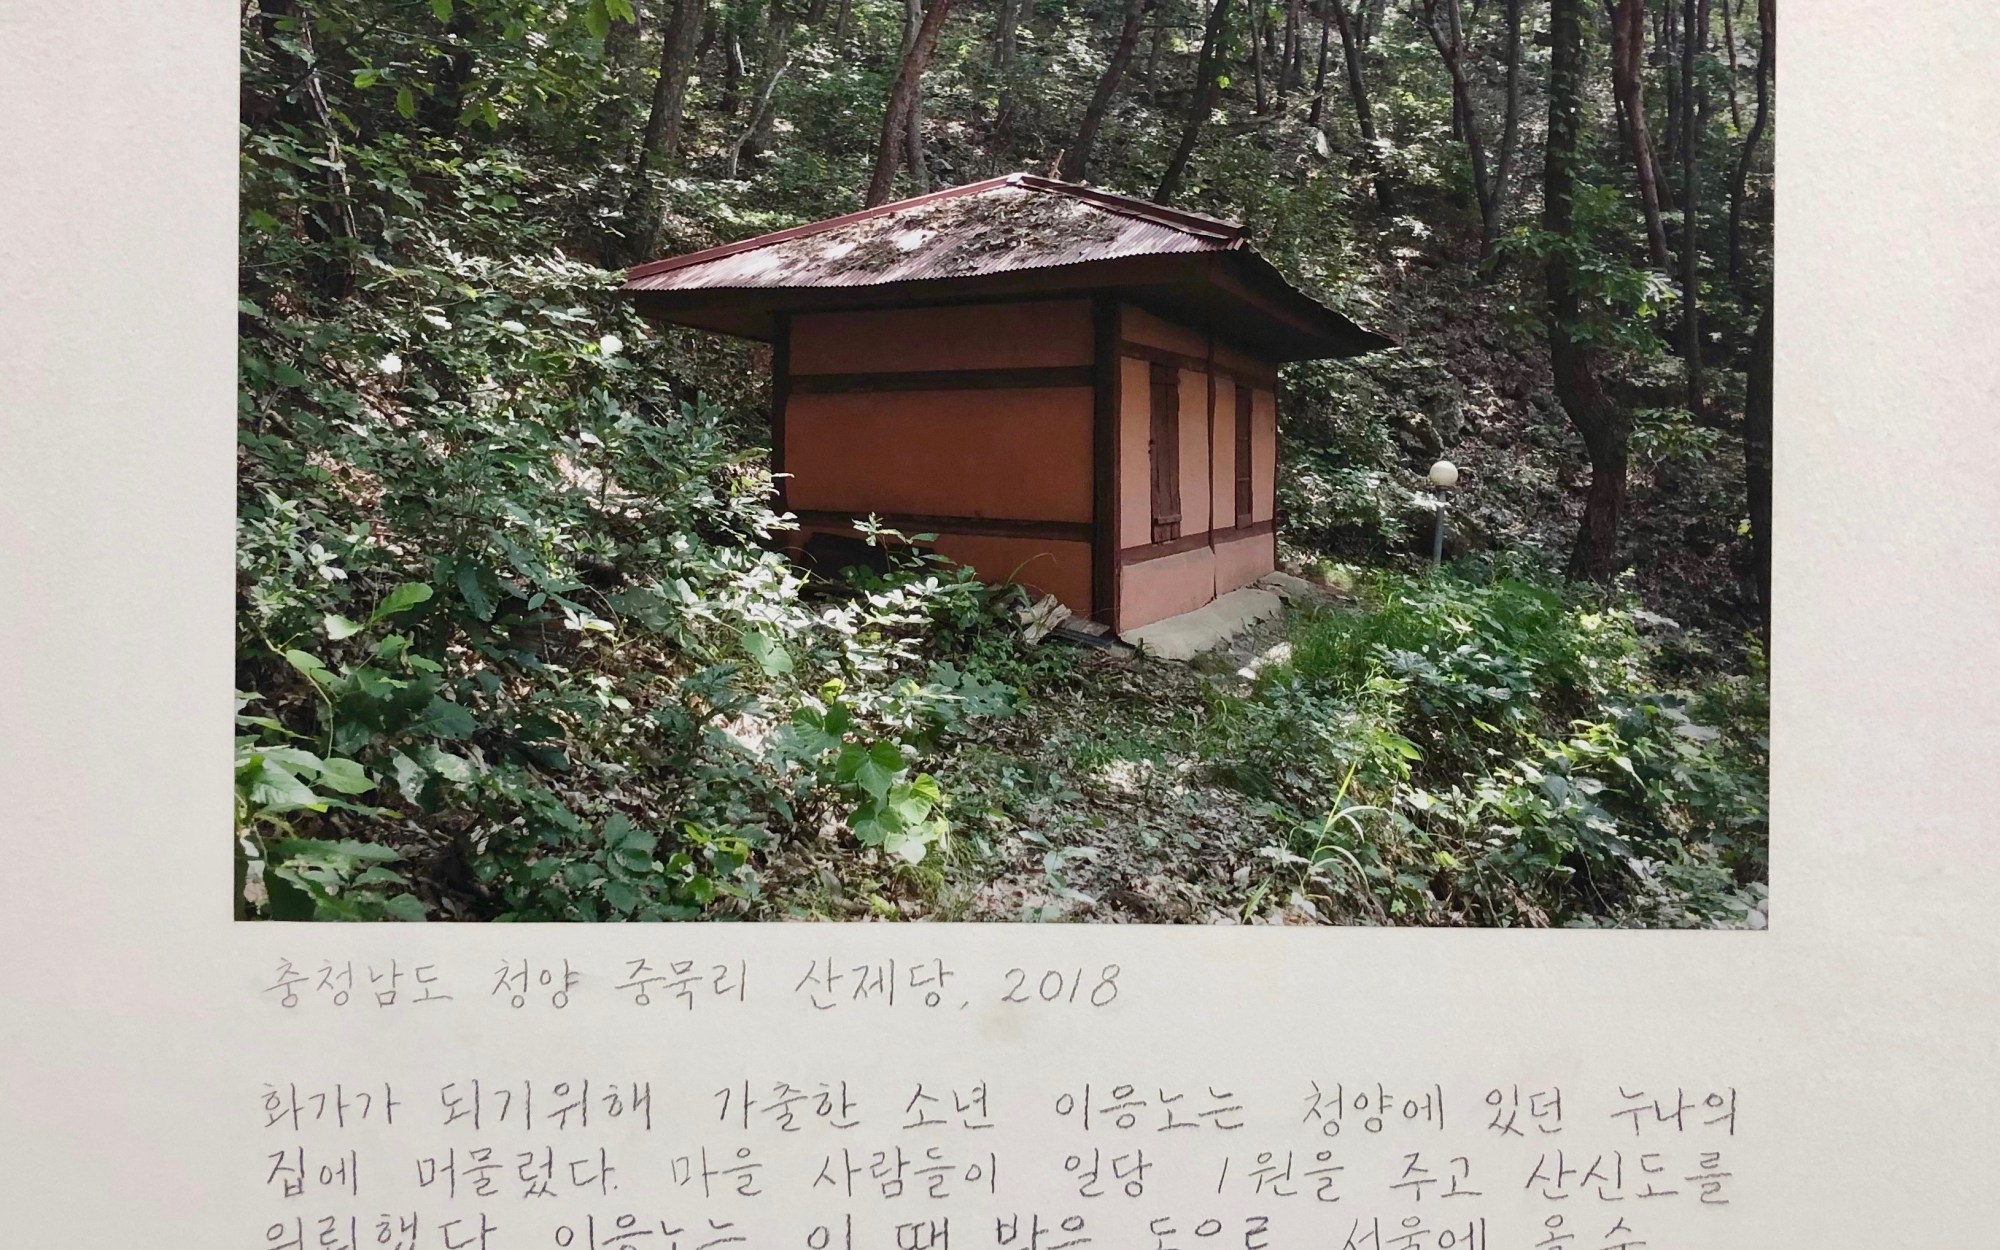 충청남도 청양 중묵리 산제당, 2018
화가가 되기위해 가출한 소년 이응노는 청양에 있던 누나의
집에 머물렀다. 마을 사람들이 일당 1원을 주고 산신도를
의뢰했다 이응노는 이 때 받은 돈으로 서울에 올 수